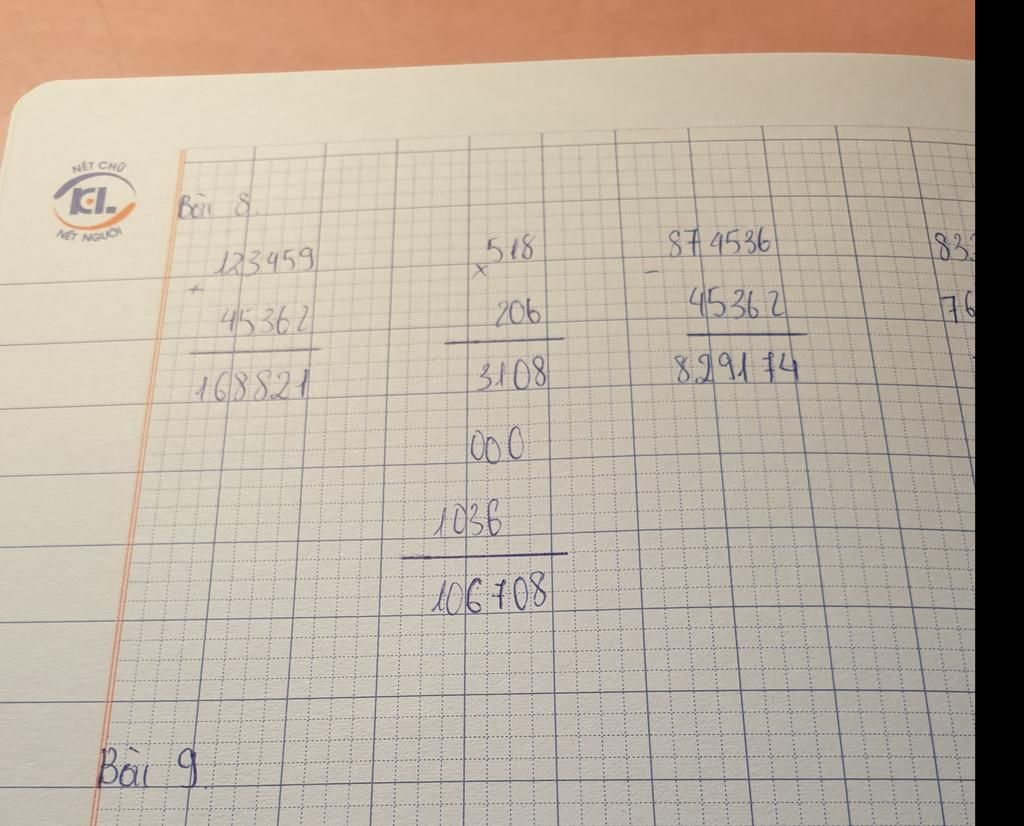 NÉT CHỮ
KL
NẾT NGƯỜI
Bài 8.
123459
+
45362
168821
518
×
206
3108
000
1036
106708
874536
-
45362
829174
83
76
Bài 9.